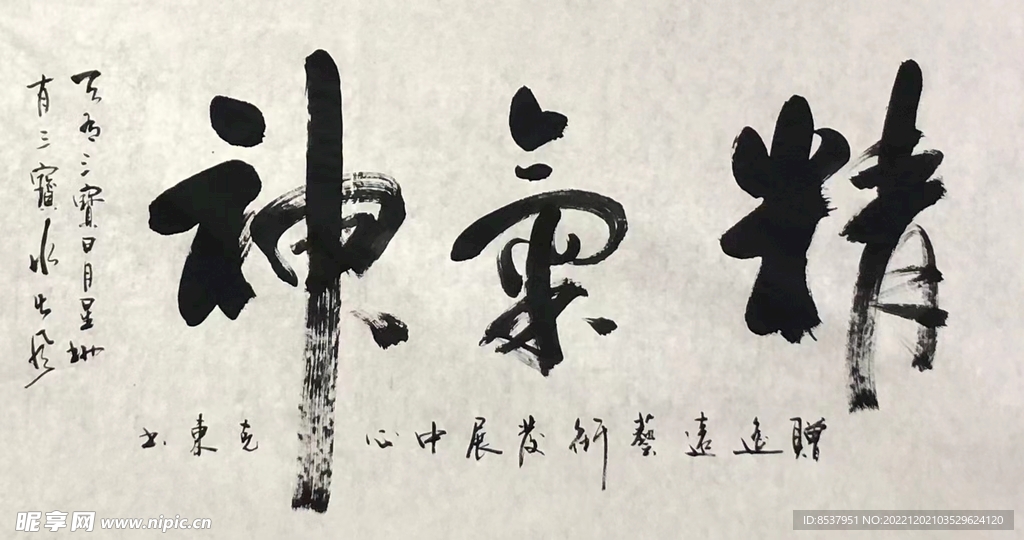 精氣神
贈遠藝術發展中心 克東书
天有三寶日月星地
有三寶水火風
昵享网 www.nipic.cn
ID:8537951 NO:20221202103529624120